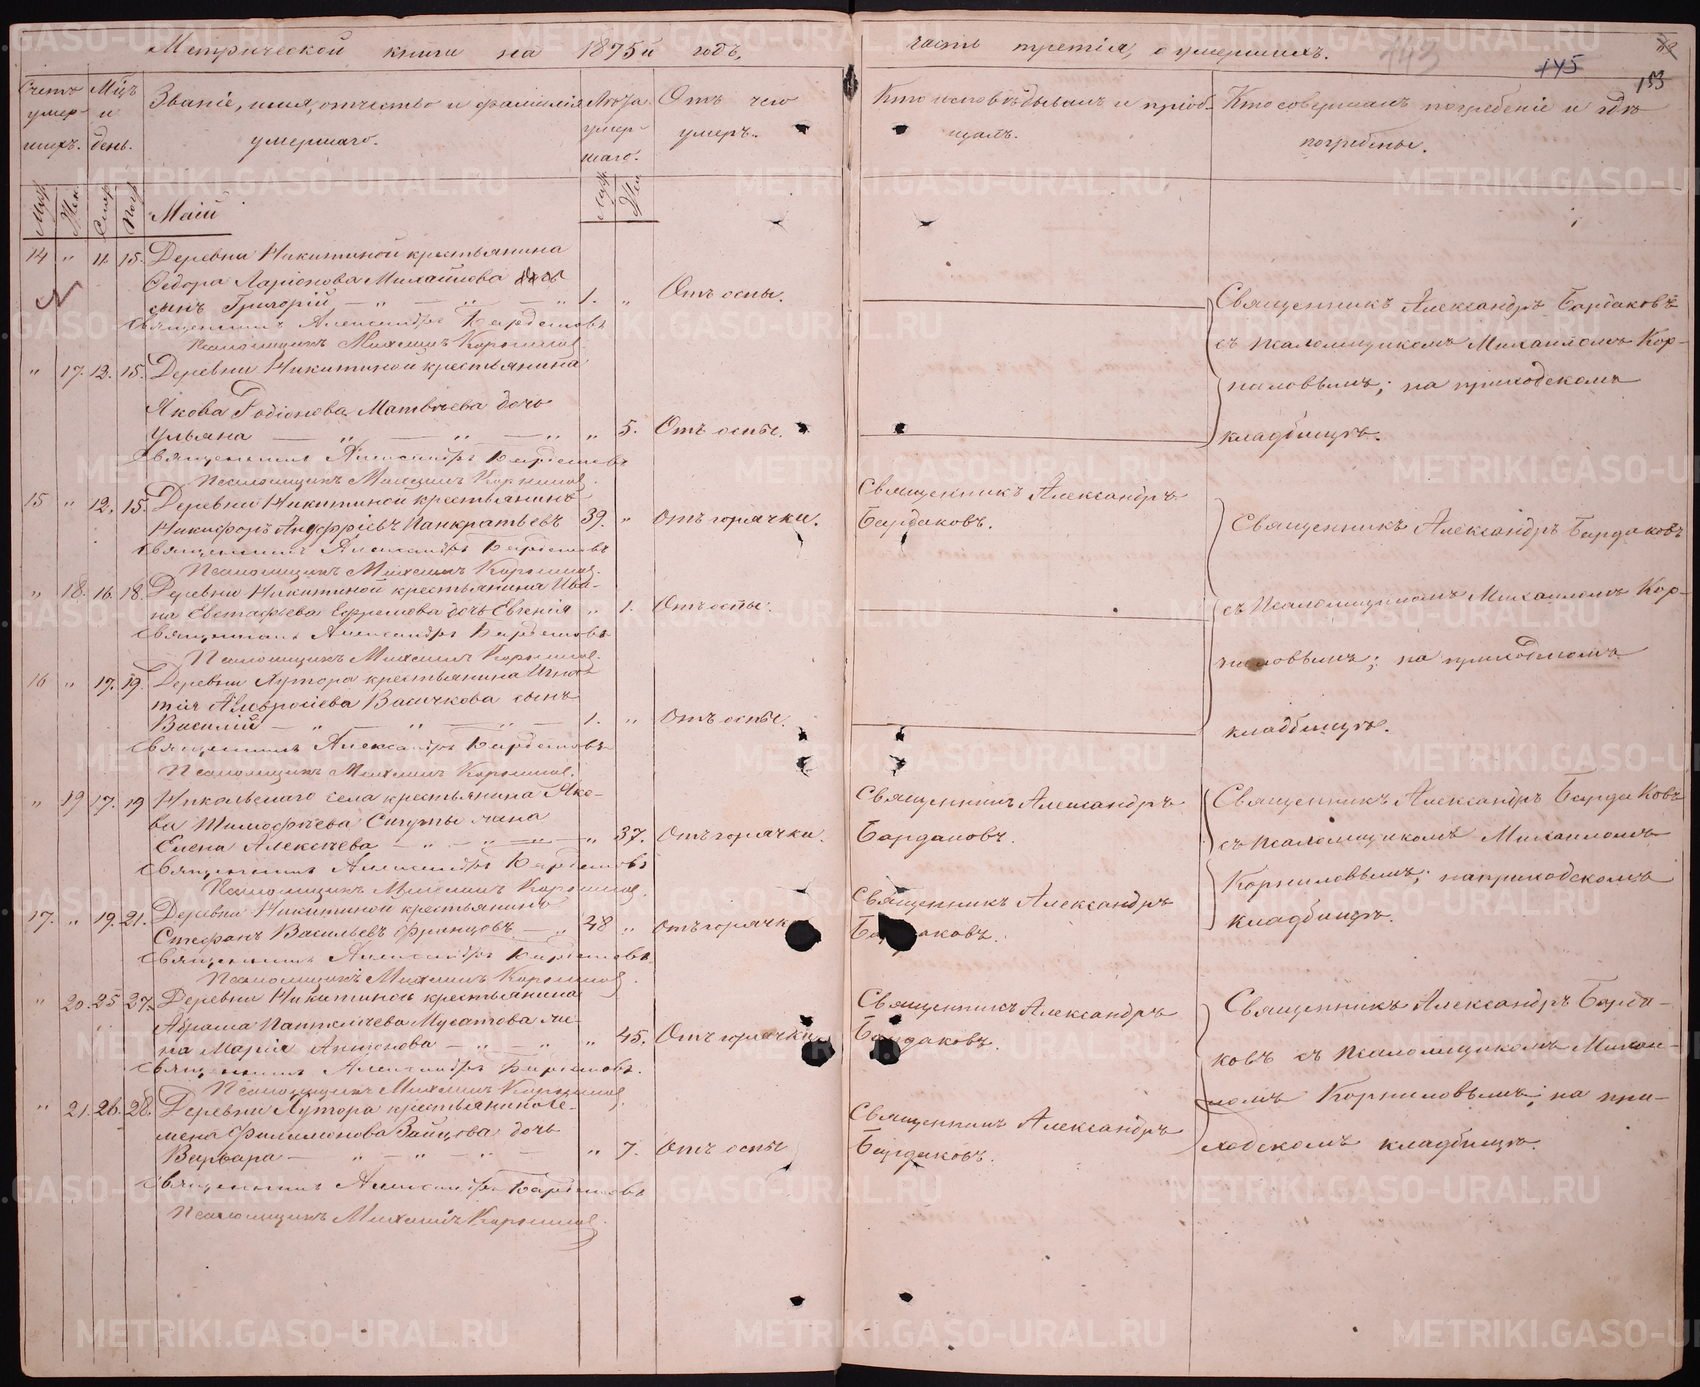 Метрической книги на 1875й годъ,
Счетъ умер-шихъ.
Мцъ и день.
Званіе, имя, отчество и фамилія умершаго.
Лѣта умер-шаго.
Отъ чего умеръ.
Муж.
Жен.
Смер.
Пог.
Маій
Муж.
Жен.
14 " 11. 15. Деревни Никитиной крестьянина
Ѳедора Ларіонова Михайлова
сынъ Григорій — " — " — " 1. " Отъ оспы.
Священникъ Александръ Бардаковъ
Псаломщикъ Михаилъ Корниловъ.
" 17. 12. 15. Деревни Никитиной крестьянина
Якова Родіонова Матвѣева дочь
Ульяна — " — " — " " 5. Отъ оспы.
Священникъ Александръ Бардаковъ
Псаломщикъ Михаилъ Корниловъ.
15 " 12. 15. Деревни Никитиной крестьянинъ
Никифоръ Панкратьевъ 39. " Отъ горячки.
Священникъ Александръ Бардаковъ
Псаломщикъ Михаилъ Корниловъ.
" 18. 16. 18. Деревни Никитиной крестьянина Ива-
на Евстафьева Ефремова дочь Евгенія " 1. Отъ оспы.
Священникъ Александръ Бардаковъ
Псаломщикъ Михаилъ Корниловъ.
16 " 17. 19. Деревни Хутора крестьянина Игна-
тія Амвросіева Васичкова сынъ
Василій — " — " — 1. " Отъ оспы.
Священникъ Александръ Бардаковъ
Псаломщикъ Михаилъ Корниловъ.
" 19 17. 19 Никольскаго села крестьянина Яко-
ва Тимофѣева жена
Елена Алексѣева — " — " — " 37. Отъ горячки.
Священникъ Александръ Бардаковъ
Псаломщикъ Михаилъ Корниловъ.
17. " 19. 21. Деревни Никитиной крестьянинъ
Стефанъ Васильевъ Французовъ — " 48 " Отъ горячки
Священникъ Александръ Бардаковъ.
Псаломщикъ Михаилъ Корниловъ.
" 20. 25 27. Деревни Никитиной крестьянина
Абрама Пантелѣева Мусатова же-
на Марія Антонова — " — " " 45. Отъ горячки
Священникъ Александръ Бардаковъ.
Псаломщикъ Михаилъ Корниловъ.
" 21. 26. 28. Деревни Хутора крестьянина Се-
мена Филимонова Зайцова дочь
Варвара — " — " — " — " 7. Отъ оспы
Священникъ Александръ Бардаковъ
Псаломщикъ Михаилъ Корниловъ.
часть третія, о умершихъ.
143
145
153
Кто исповѣдывалъ и пріоб-щалъ.
Кто совершалъ погребеніе и гдѣ погребены.
Священникъ Александръ Бардаковъ
съ Псаломщикомъ Михаиломъ Кор-
ниловымъ; на приходскомъ
кладбищѣ.
Священникъ Александръ
Бардаковъ.
Священникъ Александръ Бардаковъ
съ Псаломщикомъ Михаиломъ Кор-
ниловымъ; на приходскомъ
кладбищѣ.
Священникъ Александръ
Бардаковъ.
Священникъ Александръ Бардаковъ
съ Псаломщикомъ Михаиломъ
Корниловымъ; на приходскомъ
кладбищѣ.
Священникъ Александръ
Бардаковъ.
Священникъ Александръ
Бардаковъ.
Священникъ Александръ Барда-
ковъ съ Псаломщикомъ Михаи-
ломъ Корниловымъ; на при-
ходскомъ кладбищѣ.
Священникъ Александръ
Бардаковъ.
METRIKI.GASO-URAL.RU